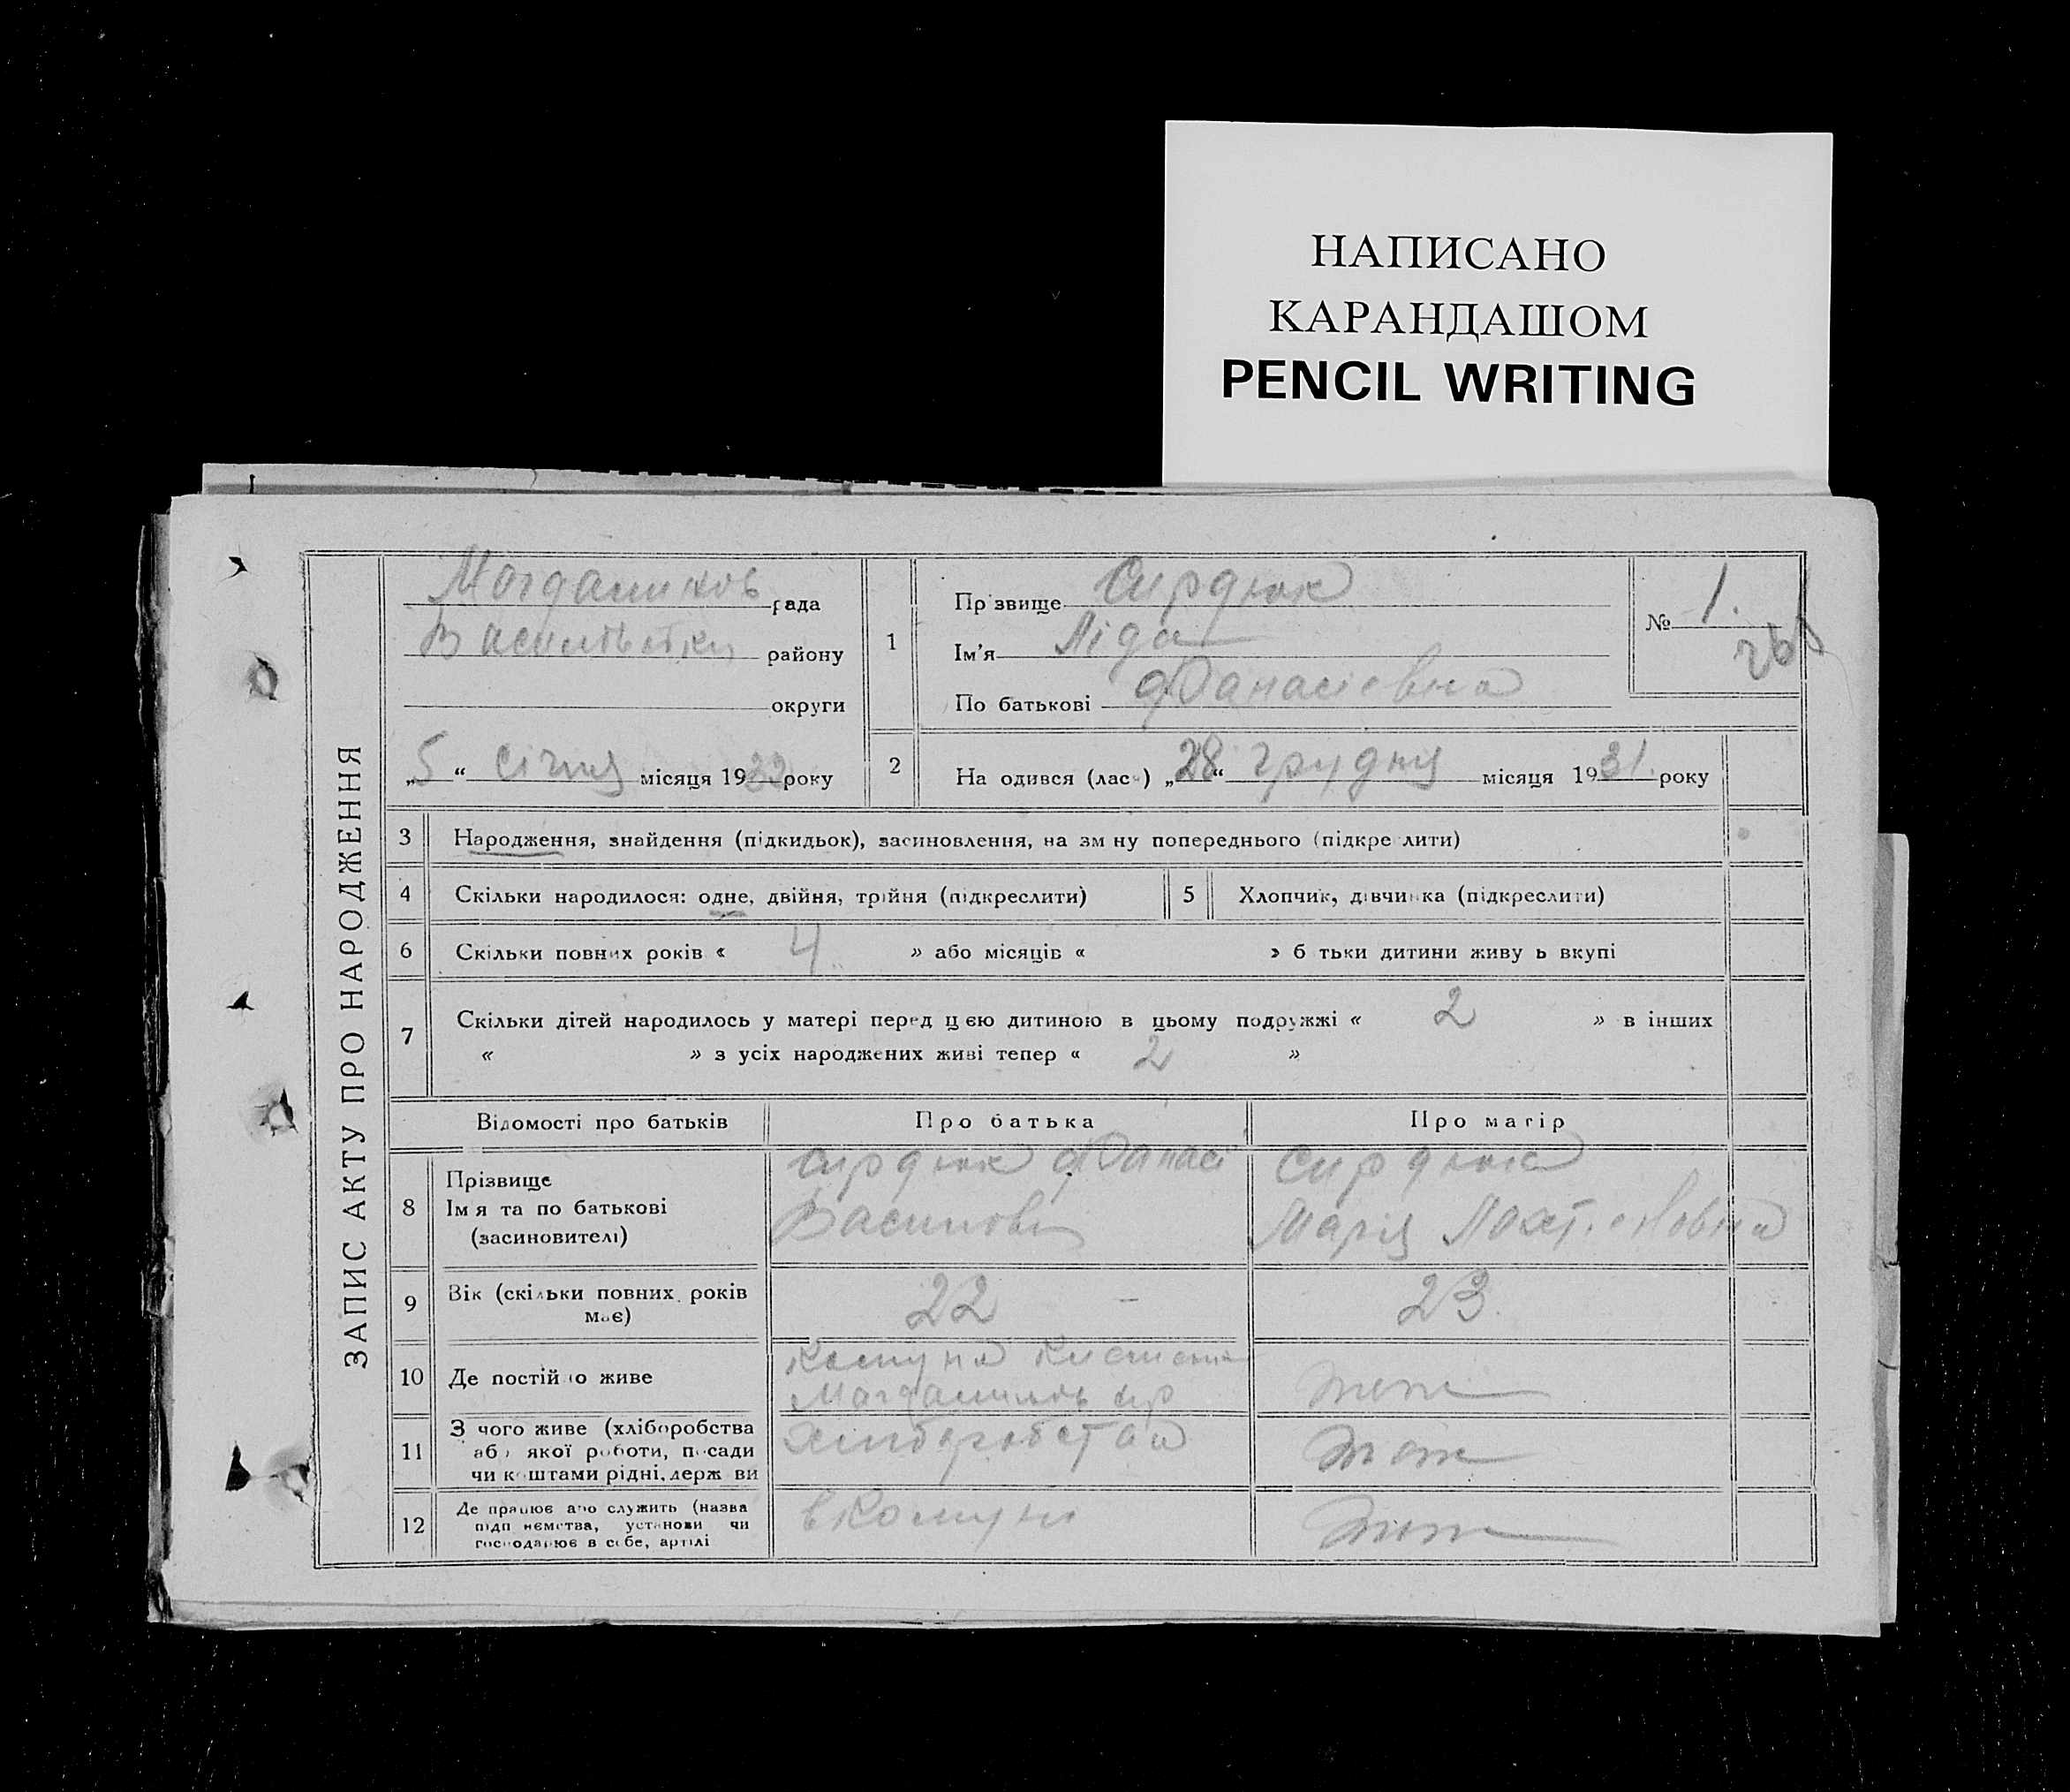 НАПИСАНО
КАРАНДАШОМ
PENCIL WRITING
ЗАПИС АКТУ ПРО НАРОДЖЕННЯ
рада
району
округи
„5“ січня місяця 1932 року
1
Прізвище Сирдюк
Ім'я Ліда
По батькові Афанасієвна
№ 1.
2
На одився (лась) „28“ грудня місяця 1931 року
3 Народження, знайдення (підкидьок), засиновлення, на зм ну попереднього (підкре лити)
4 Скільки народилося: одне, двійня, трійня (підкреслити)
5 Хлопчик, дівчинка (підкреслити)
6 Скільки повних років « 4 » або місяців « » б тьки дитини живу ь вкупі
7 Скільки дітей народилось у матері перед цією дитиною в цьому подружжі « 2 » в інших
« » з усіх народжених живі тепер « 2 »
Відомості про батьків
Про батька
Про матір
8 Прізвище
Ім я та по батькові
(засиновителі)
Сирдюк Афанасі
Василові
Сирдюк
Марія
9 Вік (скільки повних років
має)
22
23
10 Де постійно живе
Комуна
тож
11 З чого живе (хліборобства
або якої роботи, посади
чи коштами рідні, держ ви
Хліборобства
тож
12 Де працює або служить (назва
підп иємства, установи чи
господарює в себе, артілі
в Комуні
тож